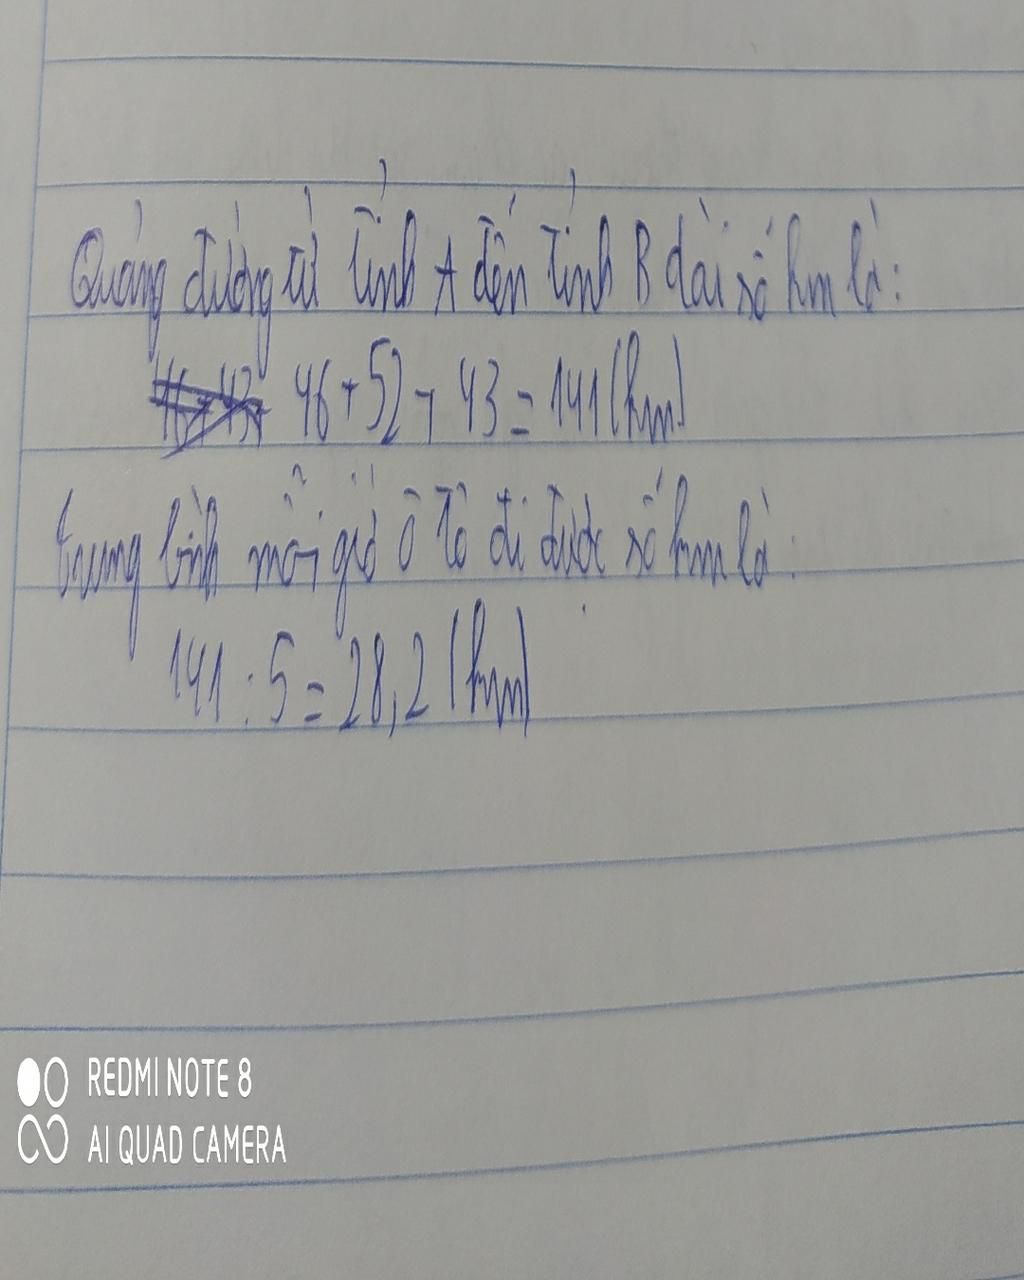 Quãng đường từ tỉnh A đến tỉnh B dài số km là:
46 + 52 + 43 = 141 (km)
Trung bình mỗi giờ ô tô đi được số km là:
141 : 5 = 28,2 (km)
REDMI NOTE 8
AI QUAD CAMERA